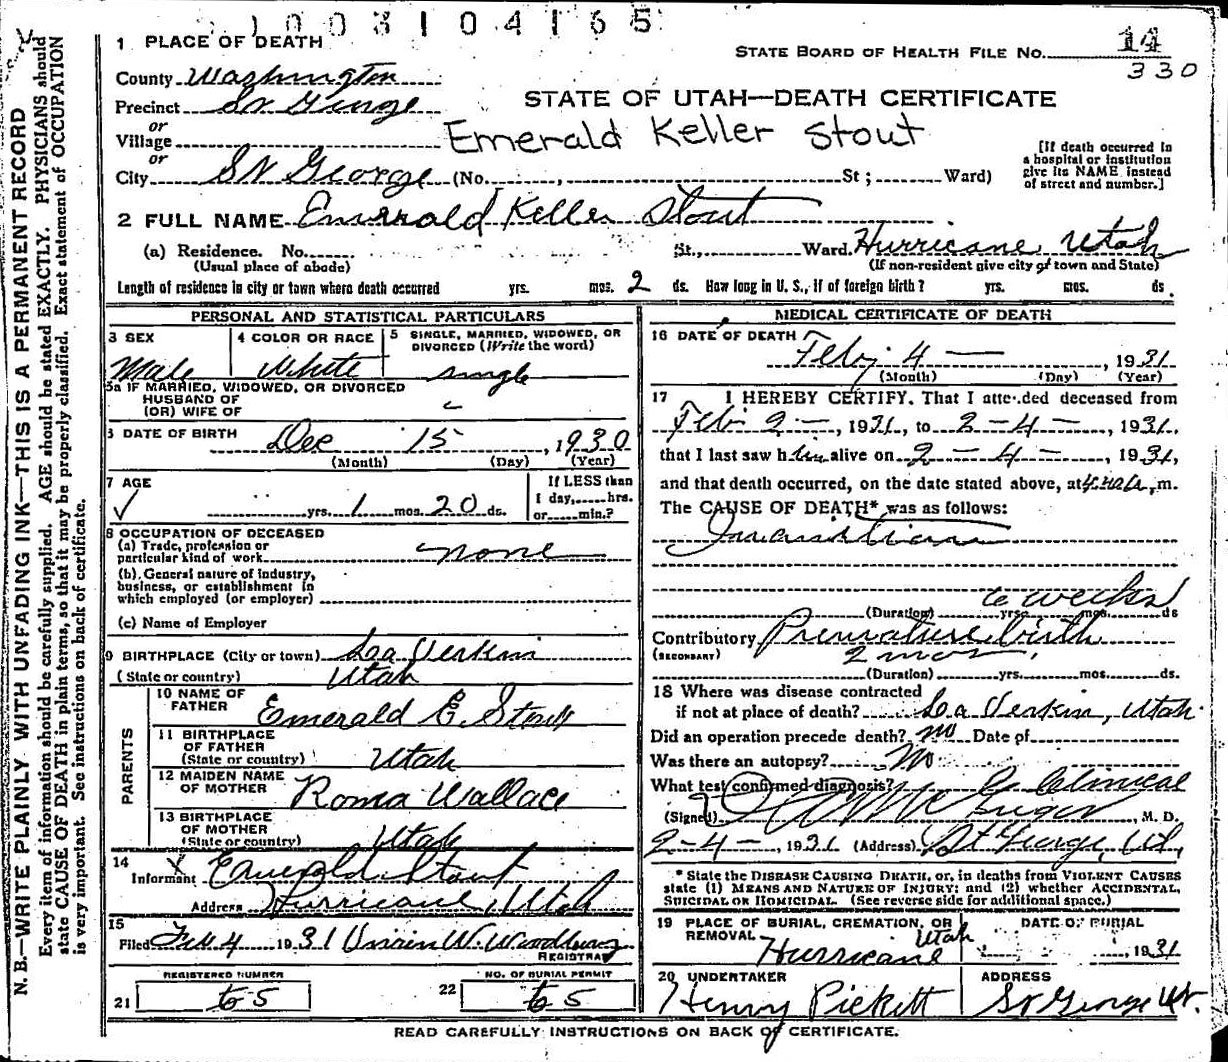 1003104165
1 PLACE OF DEATH
STATE BOARD OF HEALTH FILE NO. 14
330
County Washington
Precinct St George
STATE OF UTAH—DEATH CERTIFICATE
or
Village
Emerald Keller Stout
or
City St George (No. , St ; Ward)
[If death occurred in
a hospital or institution
give its NAME instead
of street and number.]
2 FULL NAME Emerald Keller Stout
(a) Residence. No. St., Ward. Hurricane, Utah
(Usual place of abode) (If non-resident give city of town and State)
Length of residence in city or town where death occurred yrs. mos. 2 ds. How long in U. S., if of foreign birth? yrs. mos. ds.
PERSONAL AND STATISTICAL PARTICULARS
3 SEX
Male
4 COLOR OR RACE
White
5 SINGLE, MARRIED, WIDOWED, OR
DIVORCED (Write the word)
single
5a IF MARRIED, WIDOWED, OR DIVORCED
HUSBAND OF
(OR) WIFE OF
6 DATE OF BIRTH Dec 15, 1930
(Month) (Day) (Year)
7 AGE
yrs. 1 mos. 20 ds.
If LESS than
1 day, hrs.
or min.?
8 OCCUPATION OF DECEASED
(a) Trade, profession or
particular kind of work none
(b) General nature of industry,
business, or establishment in
which employed (or employer)
(c) Name of Employer
9 BIRTHPLACE (City or town) La Verkin
(State or country) Utah
PARENTS
10 NAME OF
FATHER Emerald E. Stout
11 BIRTHPLACE
OF FATHER
(State or country) Utah
12 MAIDEN NAME
OF MOTHER Roma Wallace
13 BIRTHPLACE
OF MOTHER
(State or country) Utah
14
Informant X Emerald Stout
Address Hurricane, Utah
15
Filed Feb 4 1931
REGISTRAR
REGISTERED NUMBER
21
22 NO. OF BURIAL PERMIT
MEDICAL CERTIFICATE OF DEATH
16 DATE OF DEATH
Feby 4 —, 1931
(Month) (Day) (Year)
17 I HEREBY CERTIFY, That I attended deceased from
Feb 2 —, 1931, to 2 - 4 -, 1931,
that I last saw him alive on 2 - 4 -, 1931,
and that death occurred, on the date stated above, at m.
The CAUSE OF DEATH* was as follows:
Inanition
6 weeks
(Duration) yrs. mos. ds
Contributory Premature birth
(SECONDARY) 2 mos.
(Duration) yrs. mos. ds.
18 Where was disease contracted
if not at place of death? La Verkin, Utah
Did an operation precede death? no Date of
Was there an autopsy? No
What test confirmed diagnosis? Clinical
(Signed) McGregor, M. D.
2-4-, 1931 (Address) St George, Ut.
* State the DISEASE CAUSING DEATH, or, in deaths from VIOLENT CAUSES
state (1) MEANS AND NATURE OF INJURY; and (2) whether ACCIDENTAL,
SUICIDAL OR HOMICIDAL. (See reverse side for additional space.)
19 PLACE OF BURIAL, CREMATION, OR
REMOVAL Utah
Hurricane
DATE OF BURIAL
, 1931
20 UNDERTAKER
Henry Pickett
ADDRESS
St George Ut.
READ CAREFULLY INSTRUCTIONS ON BACK OF CERTIFICATE.
N. B.—WRITE PLAINLY WITH UNFADING INK—THIS IS A PERMANENT RECORD
Every item of information should be carefully supplied. AGE should be stated EXACTLY. PHYSICIANS should
state CAUSE OF DEATH in plain terms, so that it may be properly classified. Exact statement of OCCUPATION
is very important. See instructions on back of certificate.